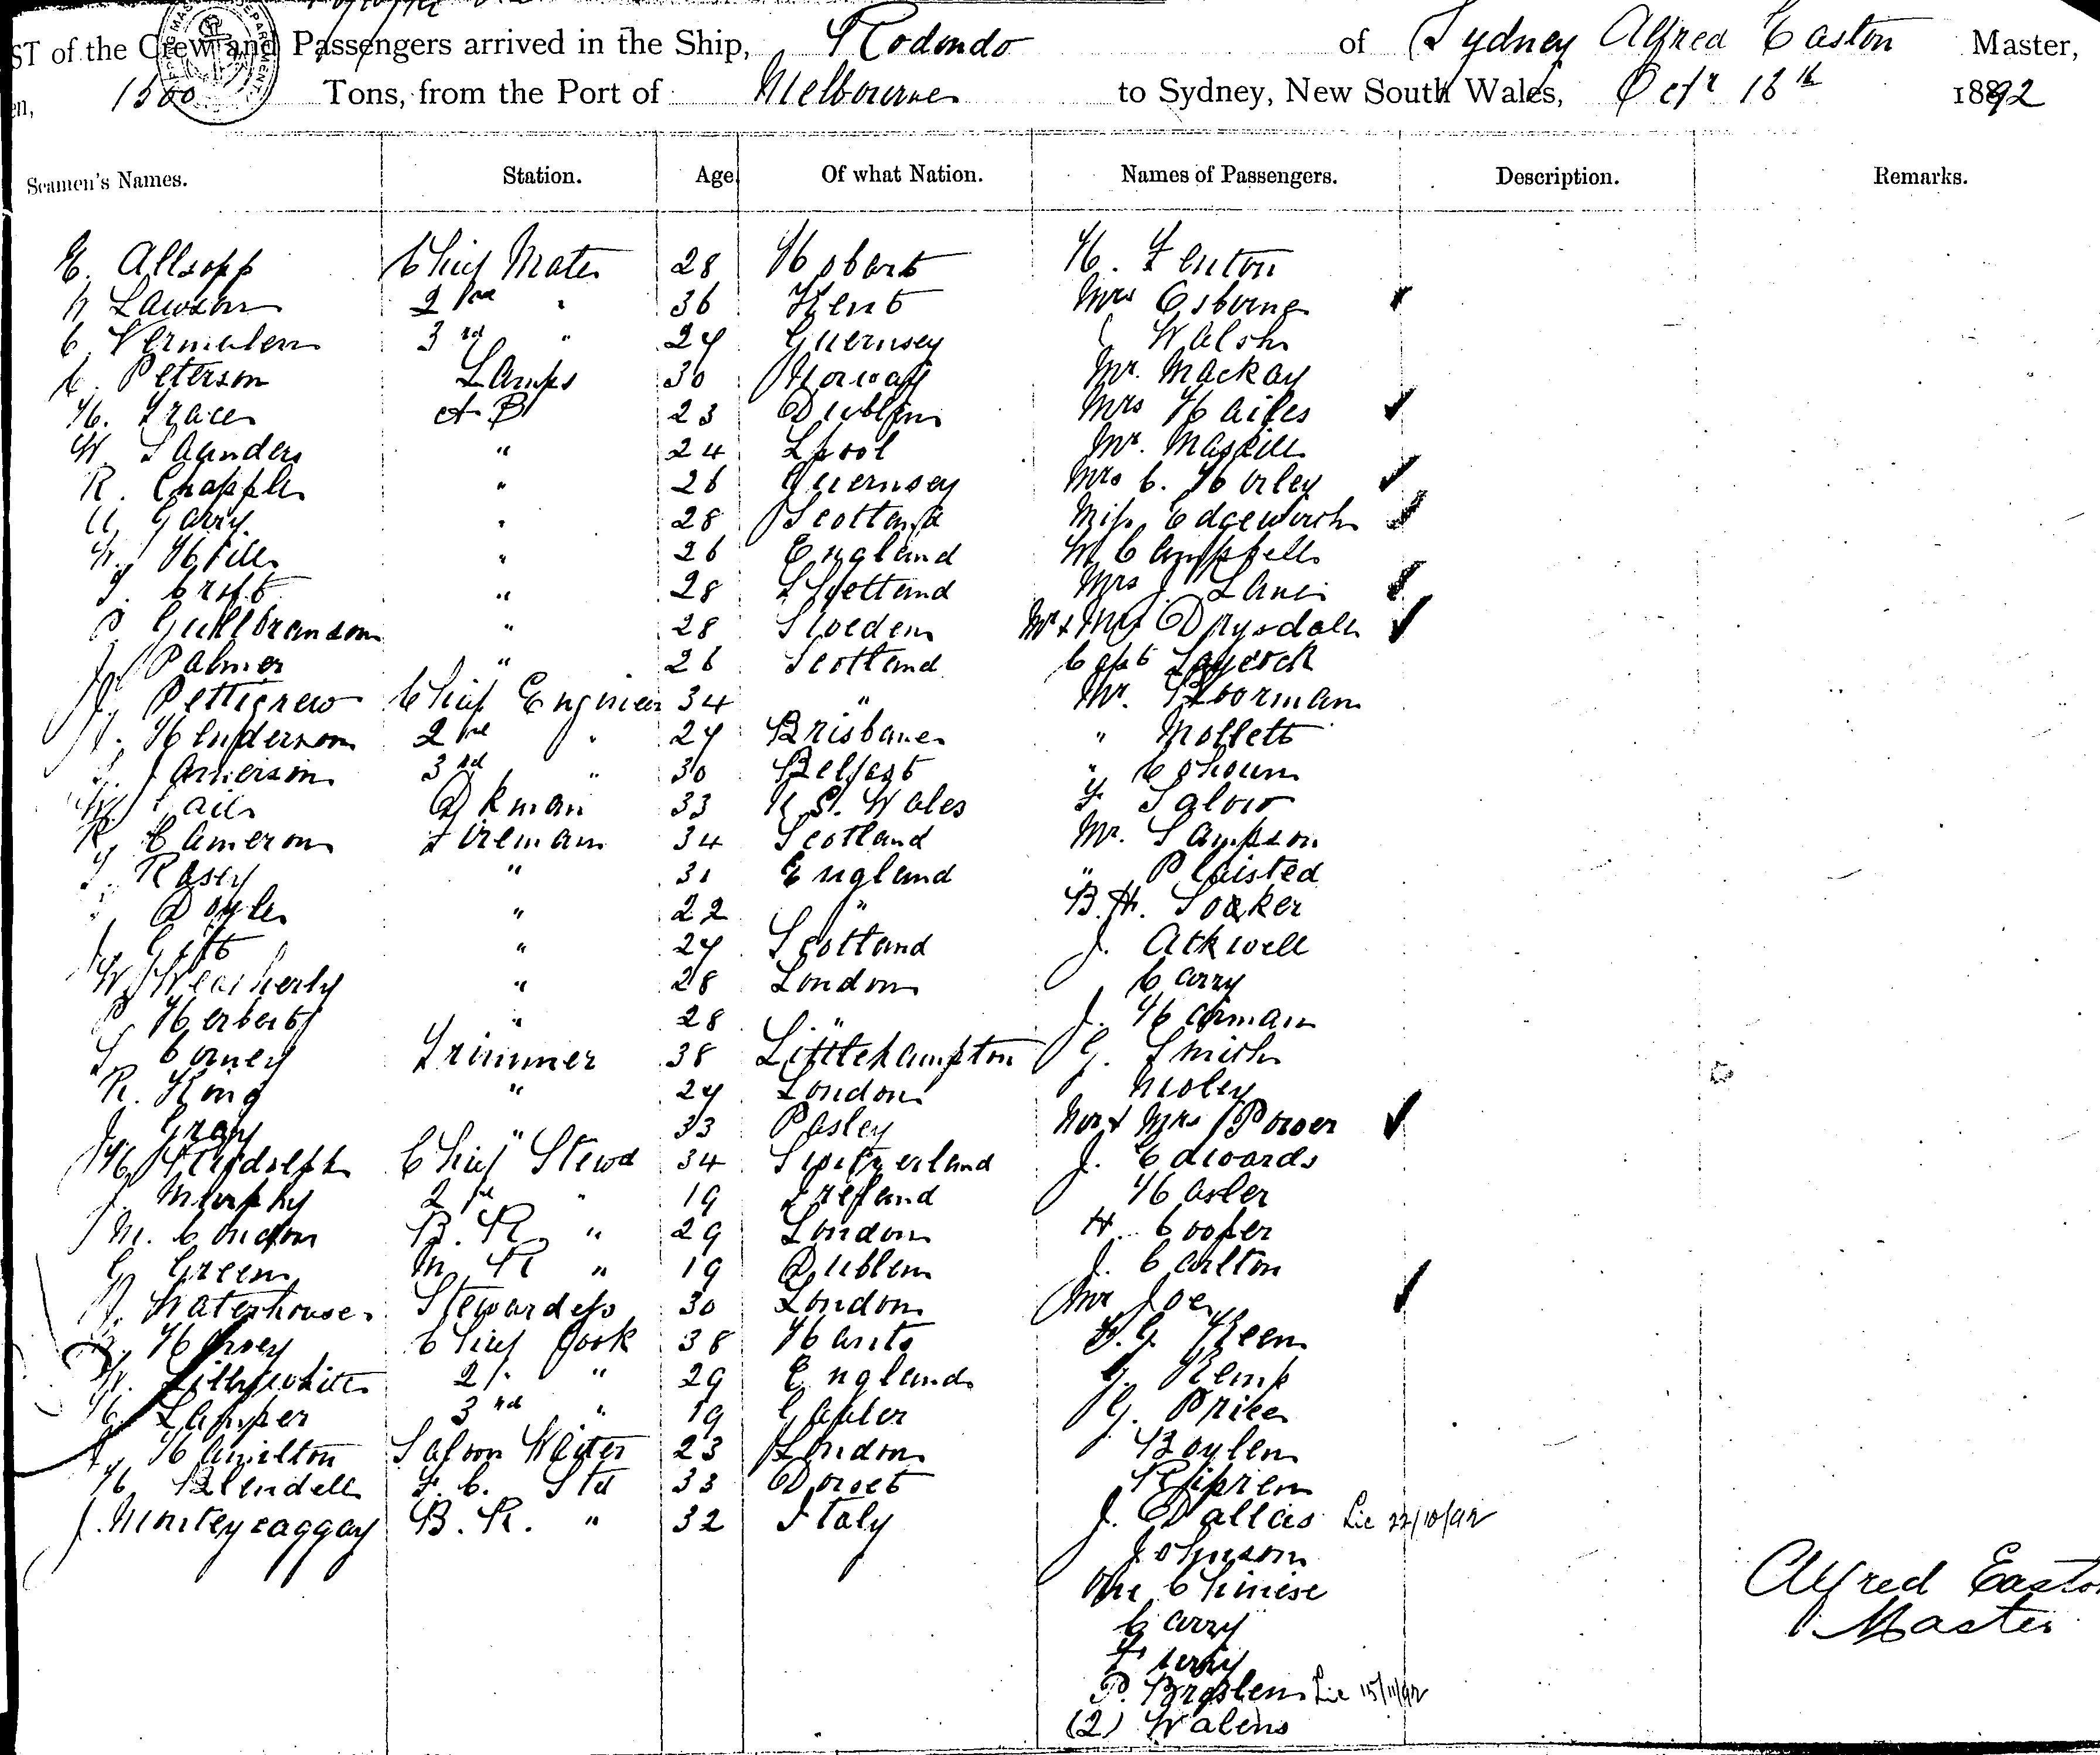 ST of the Crew and Passengers arrived in the Ship, Rodondo of Sydney Alfred Easton Master,
en, 1500 Tons, from the Port of Melbourne to Sydney, New South Wales, Octr 18th 1892
Seamen's Names. Station. Age Of what Nation. Names of Passengers. Description. Remarks.
E. Allsopp Chief Mate 28 Hobart H. Fenton
Lawson 2nd " 36 Kent Mrs Osborne
C. Vermulen 3rd " 24 Guernsey Walsh
Peterson Lamps 30 Norway Mr. Mackay
H. Trace A B 23 Dublin Mrs Hailes
W Saunders " 24 Lpool Mr. Maskell
R. Chapple " 26 Guernsey Mrs C. Horley
Garry " 28 Scotland Miss Edgeworth
Hill " 26 England Campbell
Croft " 28 Scotland Mrs J. Lane
Gullbranson " 28 Sweden Mr & Mrs Drysdale
J. Palmer " 26 Scotland Capt Laycock
J. Pettigrew Chief Engineer 34 " Mr. Boorman
J. Henderson 2nd " 24 Brisbane " Mollett
Jamieson 3rd " 30 Belfast " Cohoun
Dkman 33 N. S. Wales F Salow
R. Cameron Fireman 34 Scotland Mr. Sampson
Rasey " 31 England " Plaisted
Doyle " 22 " B. H. Soaker
J. Gift " 24 Scotland J. Atkwell
W. Weatherly " 28 London Carry
Herbert " 28 " J. Harman
Corney Trimmer 38 Littlehampton G. Smith
R. King " 24 London
J. Gray " 33 Pasley Mr & Mrs Power
H. Rudolph Chief Stewd 34 Switzerland J. Edwards
J. Murphy 2nd " 19 Ireland Hasler
M. Condon B. R. " 29 London H. Cooper
G. Green M. R " 19 Dublin J. Carlton
Waterhouse Stewardess 30 London Mr Joe
Harvey Chief Cook 38 Hants F. G. Keen
Lillywhite 2/. " 29 England G. Kemp
Lamper 3rd " 19 Gawler G. Price
Hamilton Saloon Waiter 23 London Boylen
H. Blendell F. C. Std 33 Dorset
J. B. R. " 32 Italy J. Dallas Lic 22/10/92
Johnson
One Chinese
Carry
P. Breslen Lic 15/11/92
(2) Walens
Alfred Easton
Master